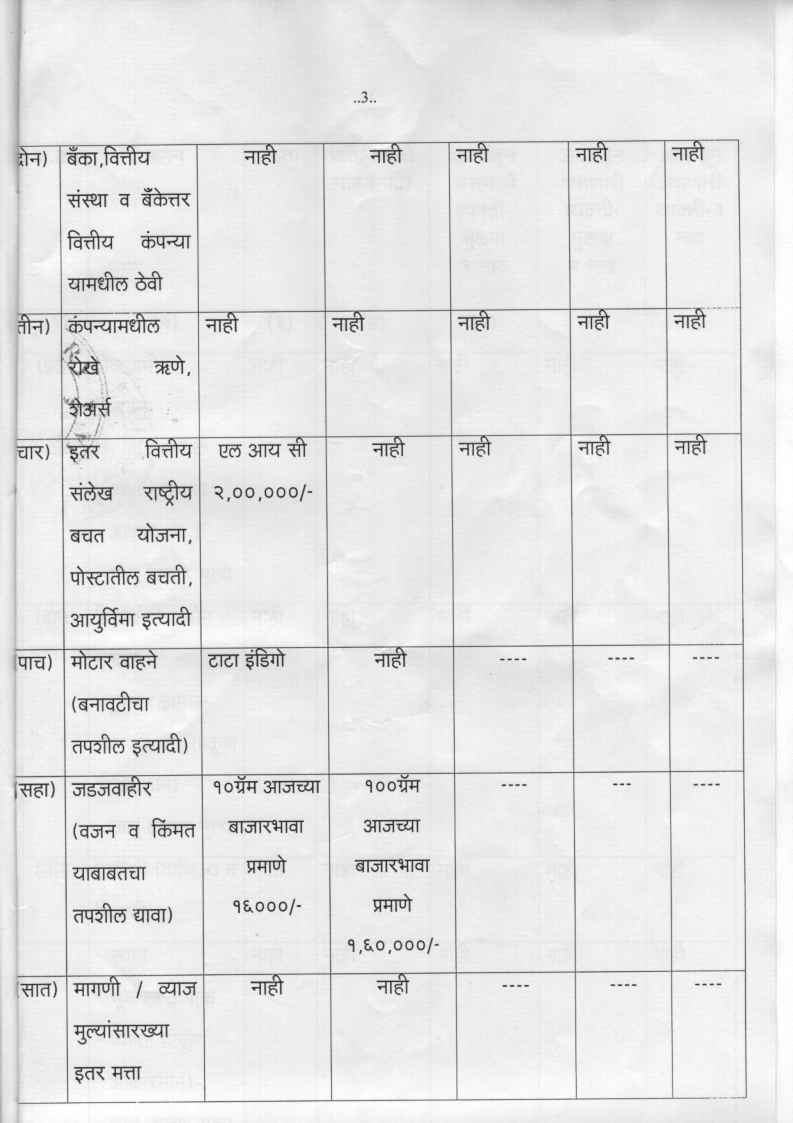 ..3..
दोन) बँका,वित्तीय नाही नाही नाही नाही नाही
संस्था व बँकेत्तर
वित्तीय कंपन्या
यामधील ठेवी
तीन) कंपन्यामधील नाही नाही नाही नाही नाही
रोखे ऋणे,
शेअर्स
चार) इतर वित्तीय एल आय सी नाही नाही नाही नाही
संलेख राष्ट्रीय २,००,०००/-
बचत योजना,
पोस्टातील बचती,
आयुर्विमा इत्यादी
(पाच) मोटार वाहने टाटा इंडिगो नाही ---- ---- ----
(बनावटीचा
तपशील इत्यादी)
(सहा) जडजवाहीर १०ग्रॅम आजच्या १००ग्रॅम ---- --- ----
(वजन व किंमत बाजारभावा आजच्या
याबाबतचा प्रमाणे बाजारभावा
तपशील द्यावा) १६०००/- प्रमाणे
१,६०,०००/-
(सात) मागणी / व्याज नाही नाही ---- ---- ----
मुल्यांसारख्या
इतर मत्ता